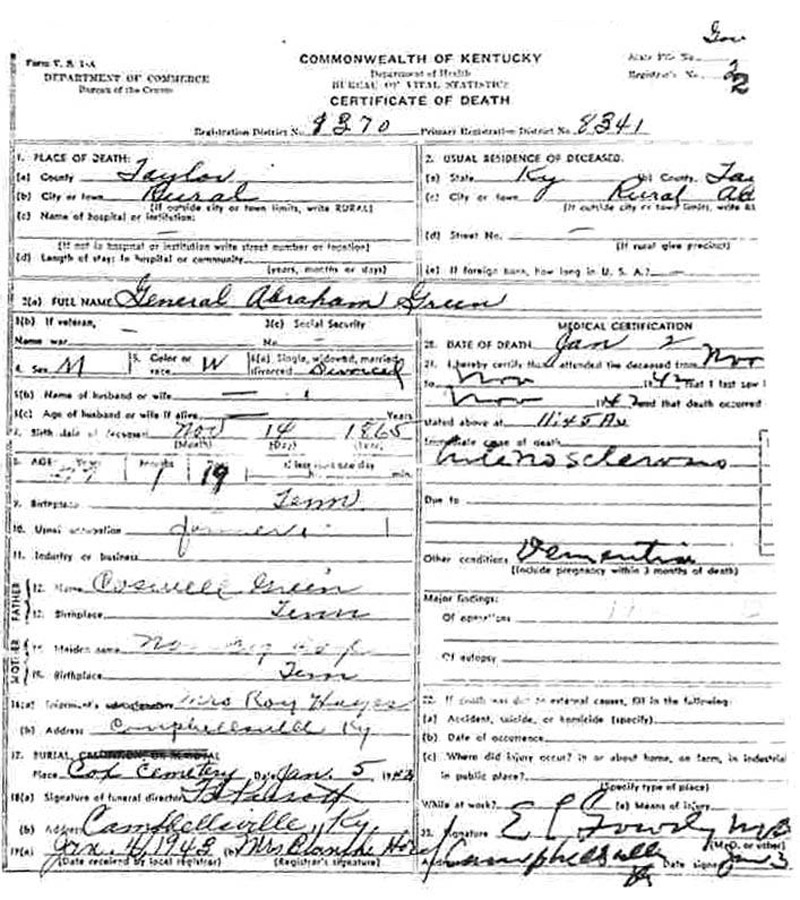 Form V. S. 1-A
DEPARTMENT OF COMMERCE
Bureau of the Census
COMMONWEALTH OF KENTUCKY
Department of Health
BUREAU OF VITAL STATISTICS
CERTIFICATE OF DEATH
State File No.
Registrar's No. 2
Registration District No. 1370 Primary Registration District No. 8341
1. PLACE OF DEATH:
(a) County Taylor
(b) City or town Rural
(If outside city or town limits, write RURAL)
(c) Name of hospital or institution:
—
(If not in hospital or institution write street number or location)
(d) Length of stay: In hospital or community
(years, months or days)
2. USUAL RESIDENCE OF DECEASED.
(a) State Ky (b) County. Tay
(c) City or town Rural
(If outside city or town limits, write RU
(d) Street No. —
(If rural give precinct)
(e) If foreign born, how long in U. S. A.? —
3(a) FULL NAME General Abraham Green
3(b) If veteran, —
Name war
3(c) Social Security
No. —
4. Sex M 5. Color or race W 6(a) Single, widowed, married, divorced Divorced
6(b) Name of husband or wife —
6(c) Age of husband or wife if alive — Years
7. Birth date of deceased Nov 14 1865
(Month) (Day) (Year)
8. AGE 77 Years 1 Months 19 If less than one day
min.
9. Birthplace Tenn
10. Usual occupation farmer
11. Industry or business
FATHER
12. Name Coswell Green
13. Birthplace Tenn
MOTHER
14. Maiden name
15. Birthplace Tenn
16(a) Informant's Mrs Roy Hayes
(b) Address Campbellsville Ky
17. BURIAL, CREMATION OR REMOVAL
Place Cox Cemetery Date Jan. 5 1943
18(a) Signature of funeral director
(b) Address Campbellsville, Ky.
19(a) Jan. 4, 1943 (b) Mrs Blanche
(Date received by local registrar) (Registrar's signature)
MEDICAL CERTIFICATION
20. DATE OF DEATH Jan 2
21. I hereby certify that I attended the deceased from Nov
to Nov 1942 that I last saw
Nov 1942 and that death occurred
stated above at 11:45 Am
Immediate cause of death
Due to
Other conditions Dementia
(Include pregnancy within 3 months of death)
Major findings:
Of operations
Of autopsy
22. If death was due to external causes, fill in the following:
(a) Accident, suicide, or homicide (specify)
(b) Date of occurrence
(c) Where did injury occur? in or about home, on farm, in industrial
in public place?
(Specify type of place)
While at work? (e) Means of injury
23. Signature E L Gowdy MD
(M.D. or other)
Address Campbellsville Date signed Jan 3
Ky